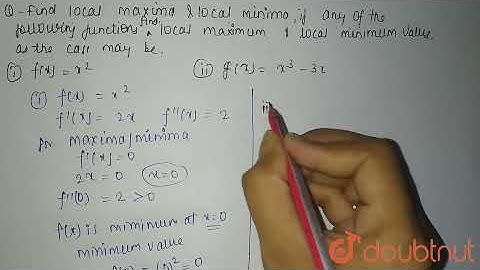 Q- Find local maxima & local minima, if any of the
following functions, find local maximum & local minimum value,
as the case may be.
(i) f(x) = x²
(ii) g(x) = x³ - 3x
(i) f(x) = x²
f'(x) = 2x f''(x) = 2
for maxima/minima
f'(x) = 0
2x = 0 x = 0
f''(0) = 2 > 0
f(x) is minimum at x = 0
minimum value
= (0)² = 0
ii
doubtnut